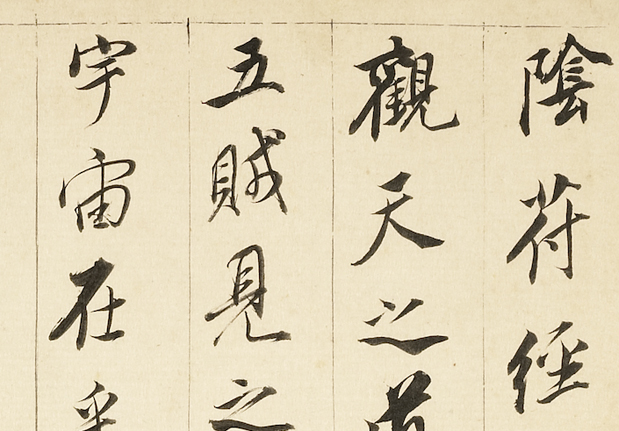 陰符經
觀天之道
五賊見之
宇宙在乎